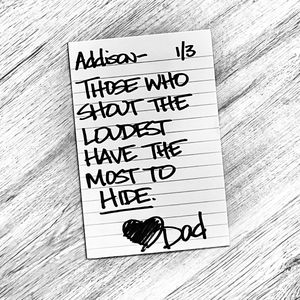 Addison- 1/3
THOSE WHO
SHOUT THE
LOUDEST
HAVE THE
MOST TO
HIDE.
Dad